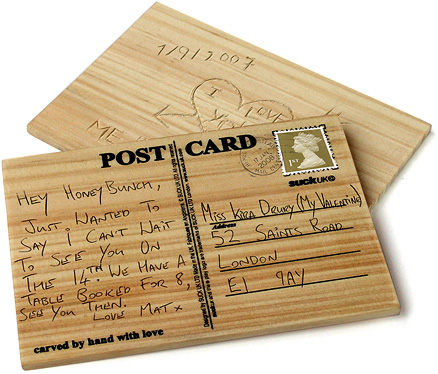 1/9/2007
I
LOVE
ME
POST CARD
1ST
suckUK
HEY HONEYBUNCH,
JUST WANTED TO
SAY I CAN'T WAIT
TO SEE YOU ON
THE 14TH. WE HAVE A
TABLE BOOKED FOR 8,
SEE YOU THEN.
LOVE MAT x
carved by hand with love
Miss KIRA DRURY (MY VALENTINE)
Address
52 SAINTS ROAD
LONDON
E1 9AY